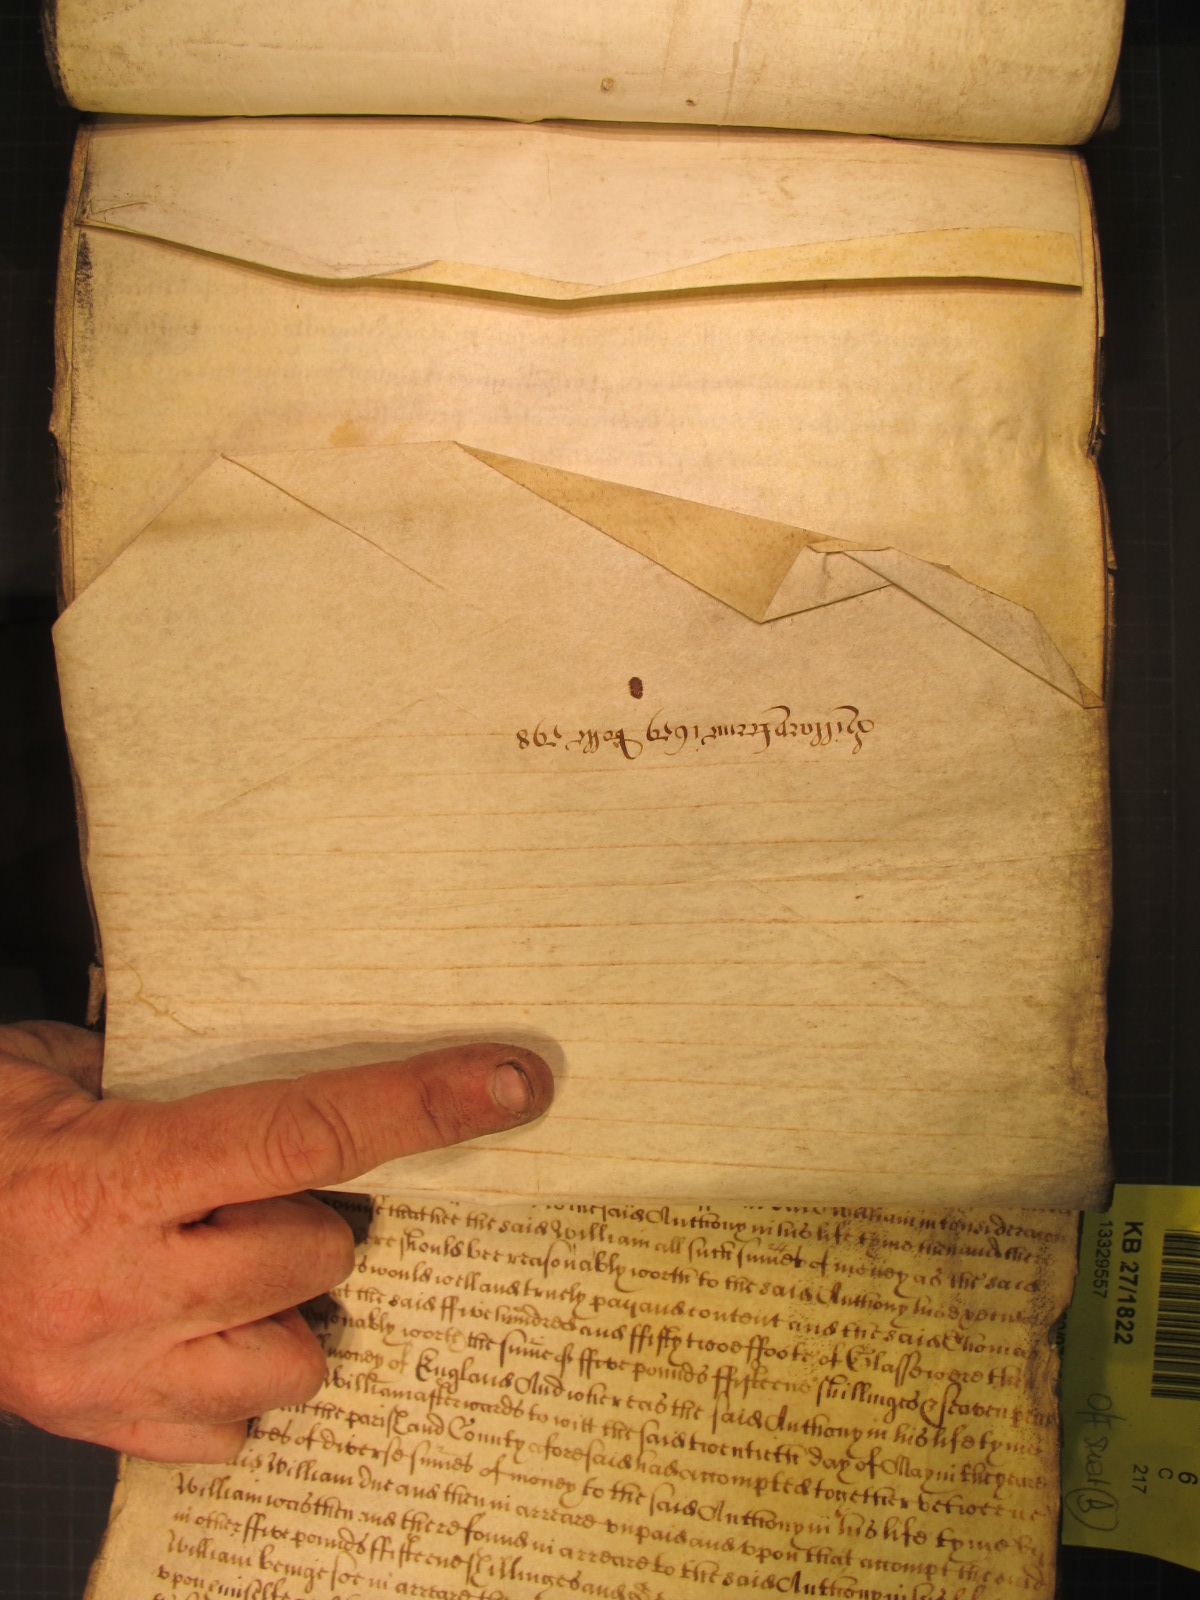 Hillary terme 1659 Rolle 598
said Anthony in his life tyme then and there
that hee the said William all such sumes of money as the said
should bee reasonably worth to the said Anthony
would well and truely pay and content and the said Thomas
at the said ffive hundred and ffifty twoe ffoote of Glasse were then
worth the sume of ffive pounds ffifteene shillinges & seaven pence
money of England And whereas the said Anthony in his life tyme
William afterwards to witt the said twentieth day of May in the yeare
the parish and County aforesaid had accompted together betweene
of diverse sumes of money to the said Anthony in his life tyme by
William due and then in arreare unpaid and upon that accompt the said
William was then and there found in arreare to the said Anthony in his
in other ffive pounds ffifteene shillinges and
William beinge soe in arreare
upon himselfe
KB 27/1822
13329557
6
C
217